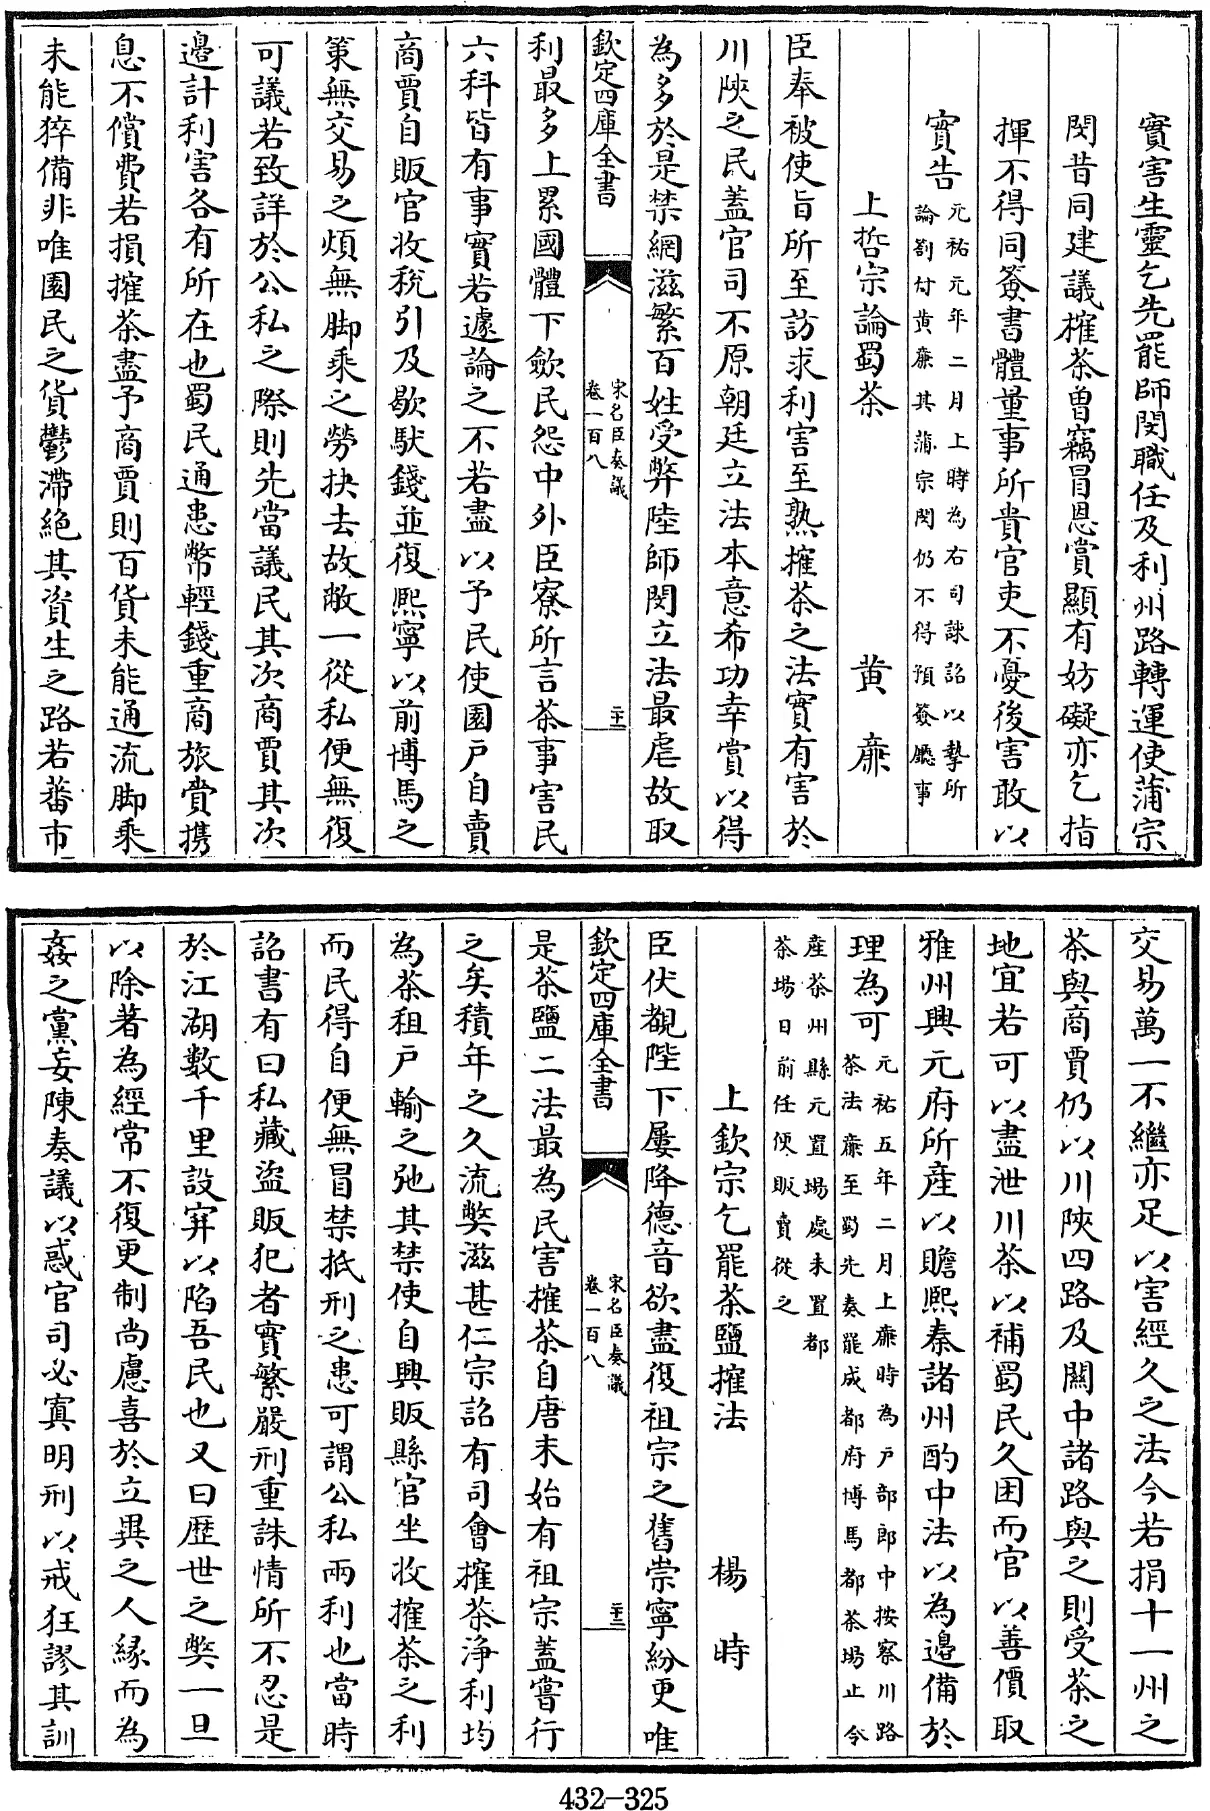 實害生靈乞先罷師閔職任及利州路轉運使蒲宗
閔昔同建議搉茶曽竊冒恩賞顯有妨礙亦乞指
揮不得同簽書體量事所貴官吏不憂後害敢以
實告
元祐元年二月上時為右司諫詔以摯所
論劄付黄亷其蒲宗閔仍不得預簽廳事
上哲宗論蜀茶　黄亷
臣奉被使旨所至訪求利害至熟搉茶之法實有害於
川陜之民蓋官司不原朝廷立法本意希功幸賞以得
為多於是禁網滋繁百姓受弊陸師閔立法最虐故取
欽定四庫全書
宋名臣奏議
卷一百八
二十二
利最多上累國體下歛民怨中外臣寮所言茶事害民
六科皆有事實若遽論之不若盡以予民使園戸自賣
商賈自販官收稅引及歇馱錢並復熈寧以前博馬之
策無交易之煩無脚乘之勞抉去故敝一從私便無復
可議若致詳於公私之際則先當議民其次商賈其次
邉計利害各有所在也蜀民通患幣輕錢重商旅賫携
息不償費若損搉茶盡予商賈則百貨未能通流脚乘
未能猝備非唯園民之貨鬱滯絶其資生之路若蕃市
交易萬一不繼亦足以害經久之法今若捐十一州之
茶與商賈仍以川陜四路及闗中諸路與之則受茶之
地宜若可以盡泄川茶以補蜀民久困而官以善價取
雅州興元府所産以贍熈秦諸州酌中法以為邉備於
理為可
元祐五年二月上亷時為戸部郎中按察川路
茶法亷至蜀先奏罷成都府博馬都茶場止令
産茶州縣元置場處未置都
茶場日前任便販賣從之
上欽宗乞罷茶鹽搉法　楊時
臣伏覩陛下屢降德音欲盡復祖宗之舊崇寧紛更唯
欽定四庫全書
宋名臣奏議
卷一百八
二十三
是茶鹽二法最為民害搉茶自唐末始有祖宗蓋嘗行
之矣積年之久流弊滋甚仁宗詔有司會搉茶浄利均
為茶租戸輸之弛其禁使自興販縣官坐收搉茶之利
而民得自便無冒禁抵刑之患可謂公私兩利也當時
詔書有曰私藏盜販犯者實繁嚴刑重誅情所不忍是
於江湖數千里設穽以陷吾民也又曰歴世之弊一旦
以除著為經常不復更制尚慮喜於立異之人縁而為
姦之黨妄陳奏議以惑官司必寘明刑以戒狂謬其訓
432-325